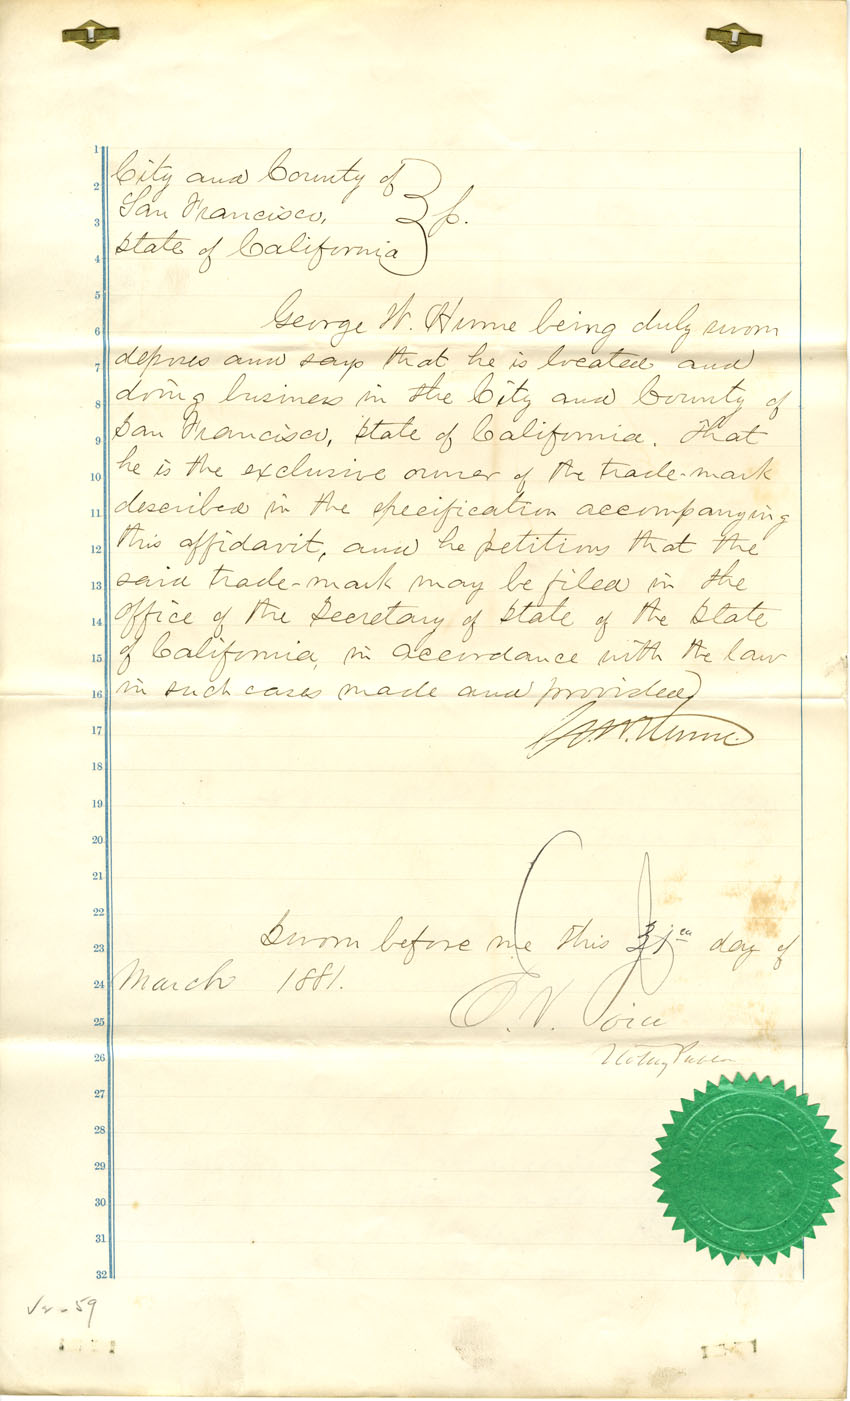 City and County of
San Francisco,
State of California
ss.
George W. Hume being duly sworn
deposes and says that he is located and
doing business in the City and County of
San Francisco, State of California. That
he is the exclusive owner of the trade-mark
described in the specification accompanying
this affidavit, and he petitions that the
said trade-mark may be filed in the
office of the Secretary of State of the State
of California, in accordance with the law
in such cases made and provided
G. W. Hume.
Sworn before me this 31st day of
March 1881.
Notary Public
1
2
3
4
5
6
7
8
9
10
11
12
13
14
15
16
17
18
19
20
21
22
23
24
25
26
27
28
29
30
31
32